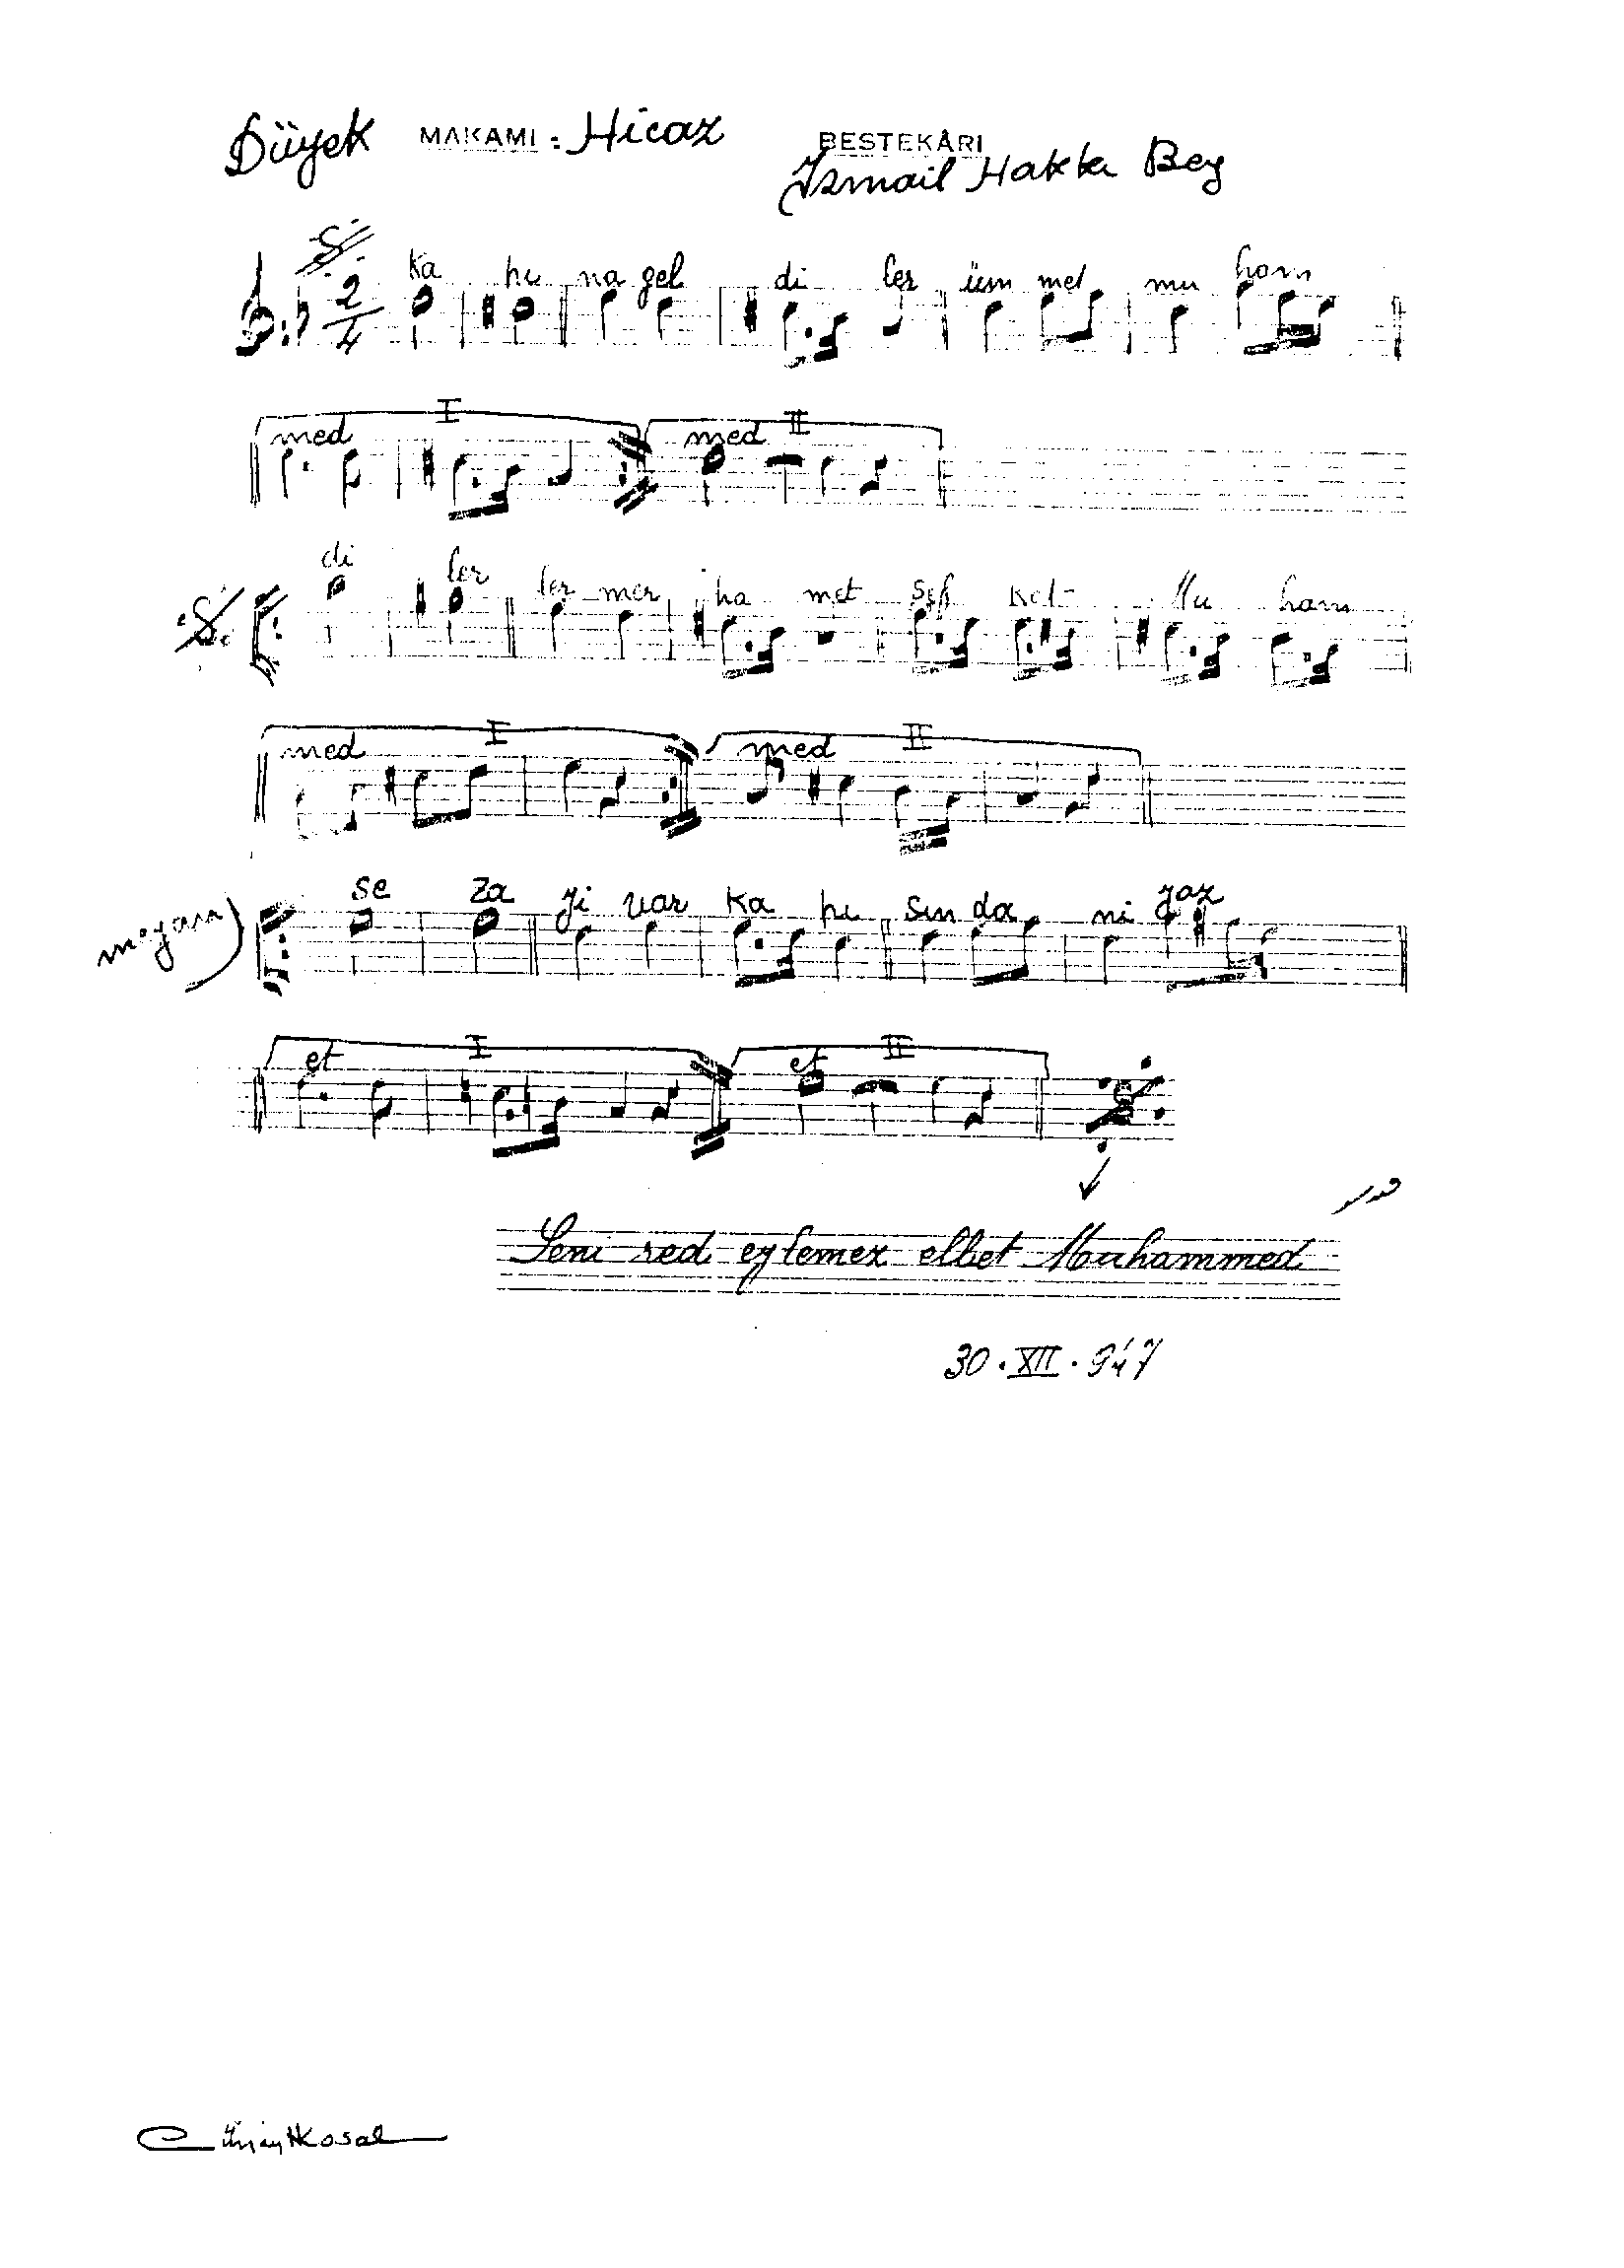 Düyek MAKAMI : Hicaz BESTEKÂRI
İsmail Hakkı Bey
2/4 Ka pı na gel di ler üm met mu ham
med I med II
di ler ler mer ha met Mu ham
med I med II
meyan) se za yi var ka pı sın da ni yaz
et I et II
Seni red eylemez elbet Muhammed
30 . XII . 947
Cüneyt Kosal